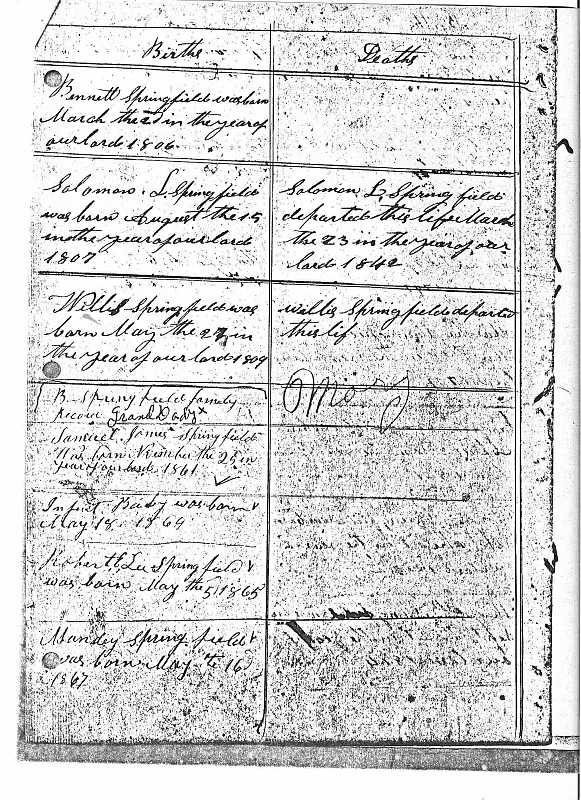 Births
Deaths
Bennett Springfield was born
March the 25 in the year of
our lord 1806
Solomon L. Springfield
was born August the 15
in the year of our lord
1807
Solomon L. Springfield
departed this life March
the 23 in the year of our
lord 1842
Willis Springfield was
born May the 27 in
the year of our lord 1809
willis Springfield departed
this lif
B. Springfield family
record Grand Dady x
Mary
Samuel James Springfield
Was born November the 25 in
year of our lord 1861
Infint Baby was born
May 18 1864
Robert E Lee Springfield
was born May the 5 1865
Mandy Springfield
was born May the 16
1867